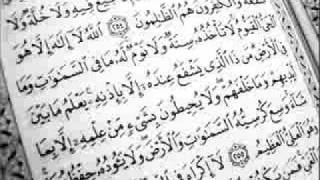 فِيهِ وَلَا خُلَّةٌ وَلَا
شَفَٰعَةٌ وَٱلْكَٰفِرُونَ هُمُ ٱلظَّٰلِمُونَ ﴿٢٥٤﴾ ٱللَّهُ لَآ إِلَٰهَ إِلَّا هُوَ
ٱلْحَىُّ ٱلْقَيُّومُ لَا تَأْخُذُهُۥ سِنَةٌ وَلَا نَوْمٌ لَّهُۥ مَا فِى ٱلسَّمَٰوَٰتِ وَمَا
فِى ٱلْأَرْضِ مَن ذَا ٱلَّذِى يَشْفَعُ عِندَهُۥٓ إِلَّا بِإِذْنِهِۦ يَعْلَمُ مَا بَيْنَ
أَيْدِيهِمْ وَمَا خَلْفَهُمْ وَلَا يُحِيطُونَ بِشَىْءٍ مِّنْ عِلْمِهِۦٓ إِلَّا بِمَا
شَآءَ وَسِعَ كُرْسِيُّهُ ٱلسَّمَٰوَٰتِ وَٱلْأَرْضَ وَلَا يَـُٔودُهُۥ حِفْظُهُمَا
وَهُوَ ٱلْعَلِىُّ ٱلْعَظِيمُ ﴿٢٥٥﴾ لَآ إِكْرَاهَ فِى ٱلدِّينِ قَد تَّبَيَّنَ